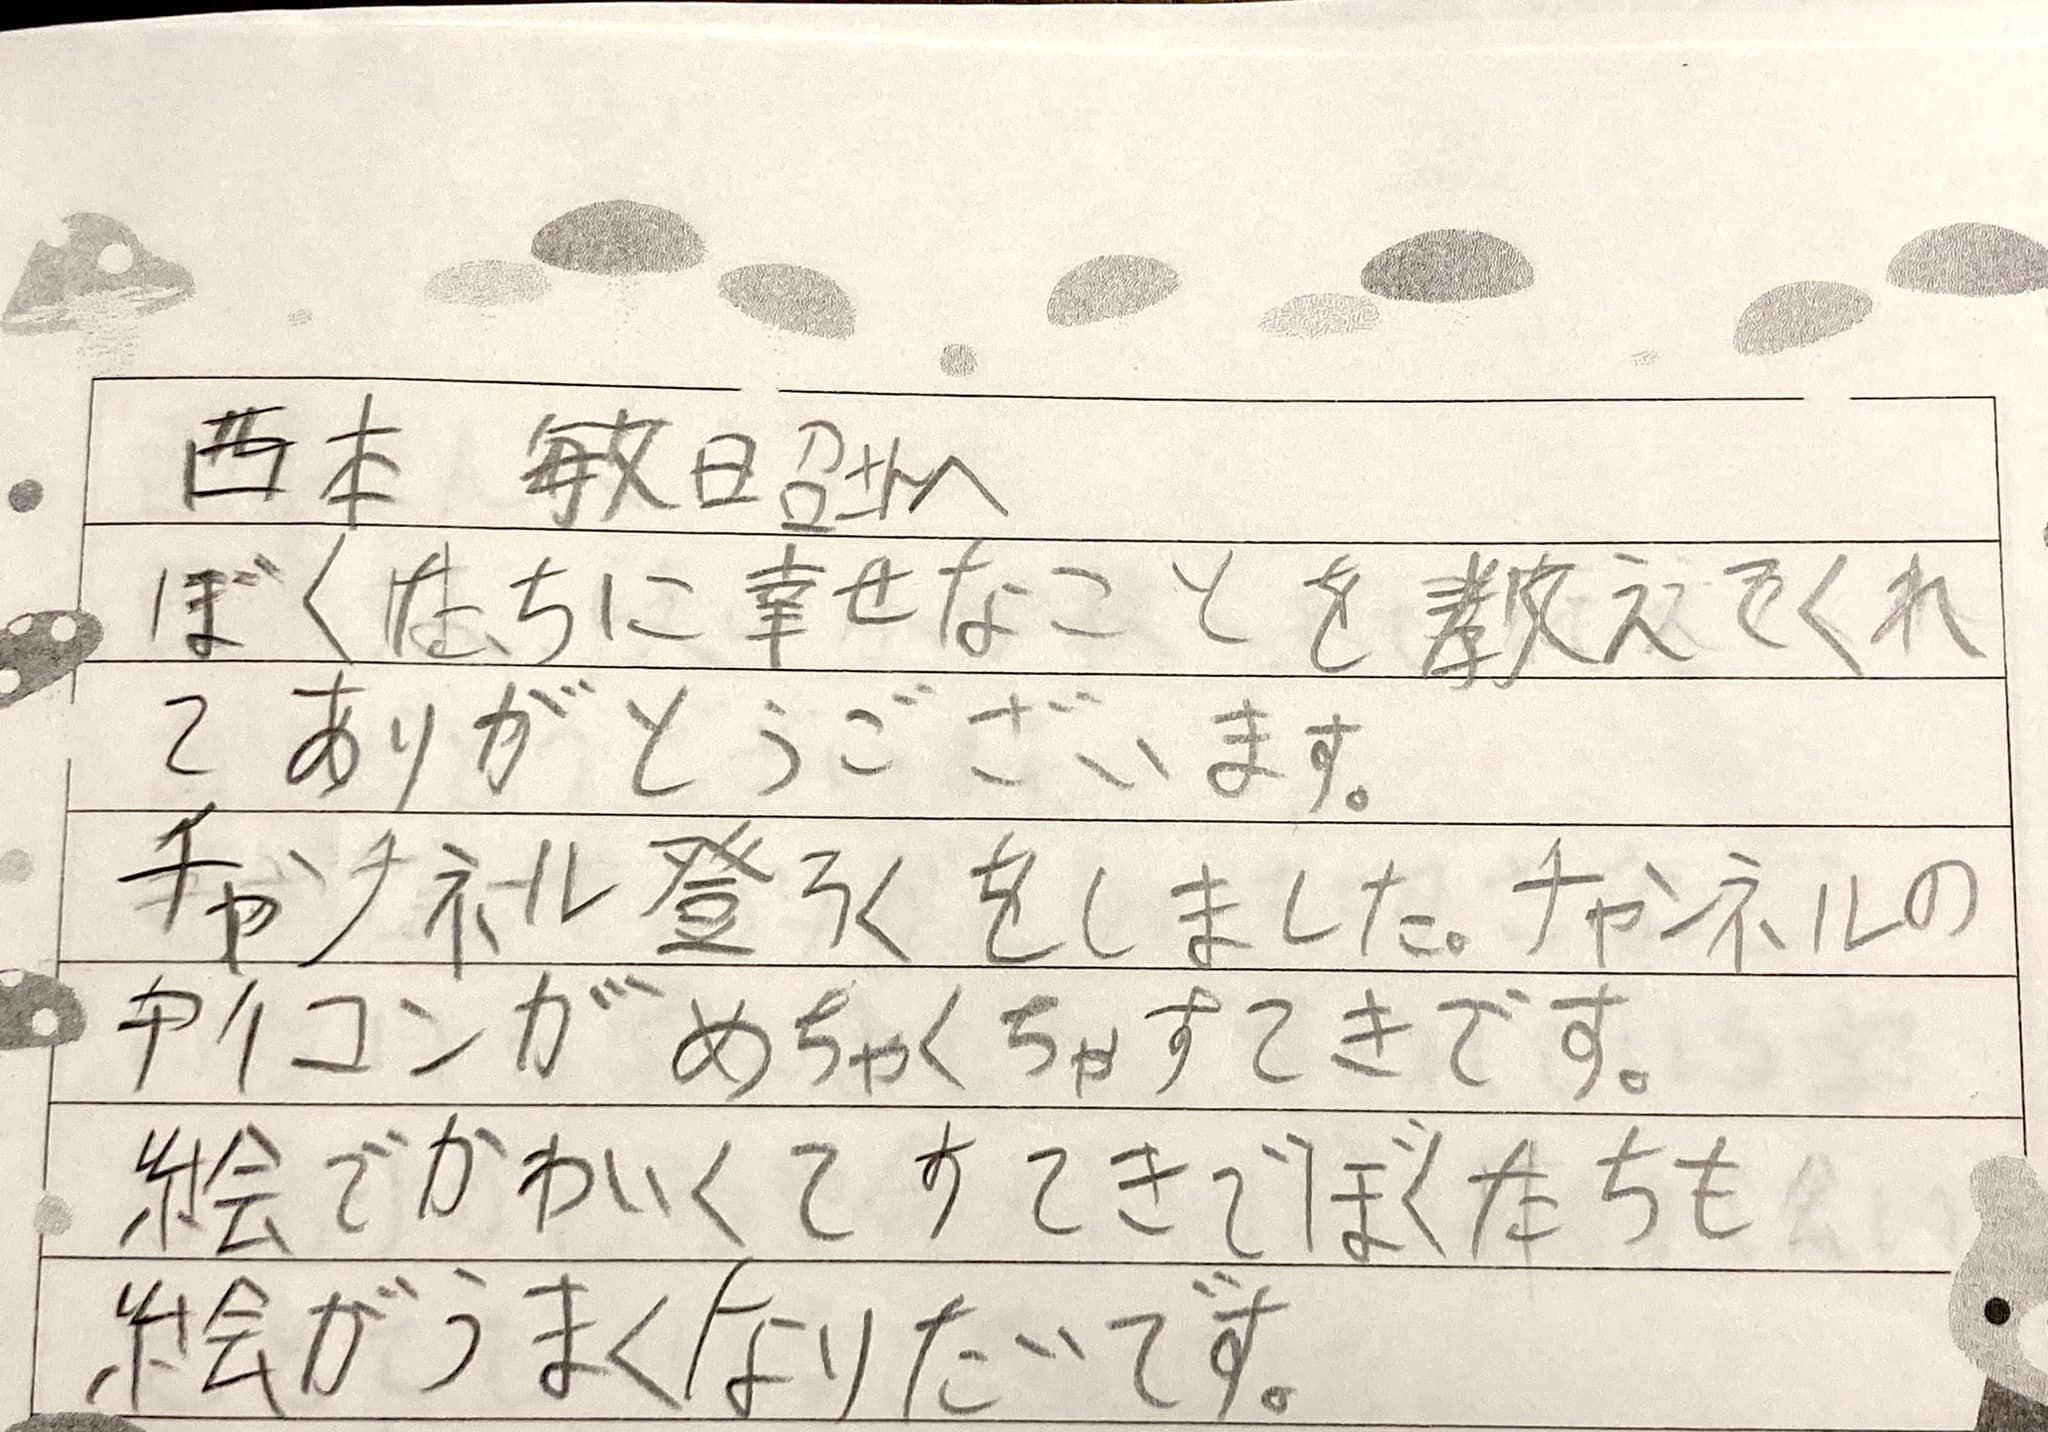 西本 敏昭さんへ
ぼくたちに幸せなことを教えてくれ
てありがとうございます。
チャンネル登ろくをしました。チャンネルの
アイコンがめちゃくちゃすてきです。
絵でかわいくてすてきでぼくたちも
絵がうまくなりたいです。